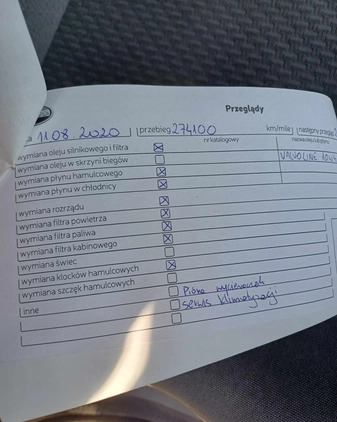 Przeglądy
11.08.2020 przebieg 274100 km/mile następny przegląd
nr katalogowy
wymiana oleju silnikowego i filtra
wymiana oleju w skrzyni biegów VALVOLINE
wymiana płynu hamulcowego
wymiana płynu w chłodnicy
wymiana rozrządu
wymiana filtra powietrza
wymiana filtra paliwa
wymiana filtra kabinowego
wymiana świec
wymiana klocków hamulcowych
wymiana szczęk hamulcowych
inne Pióra wycieraczek
serwis klimatyzacji